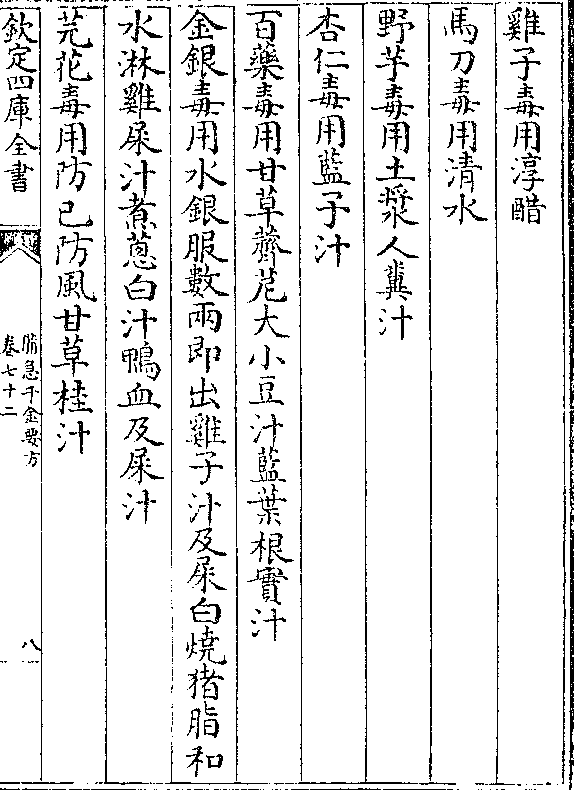 雞子毒用淳醋
馬刀毒用清水
野芋毒用土漿人糞汁
杏仁毒用藍子汁
百藥毒用甘草薺苨大小豆汁藍葉根實汁
金銀毒用水銀服數兩即出雞子汁及屎白燒猪脂和
水淋雞屎汁煮葱白汁鴨血及屎汁
芫花毒用防己防風甘草桂汁
欽定四庫全書
備急千金要方
卷七十二
八